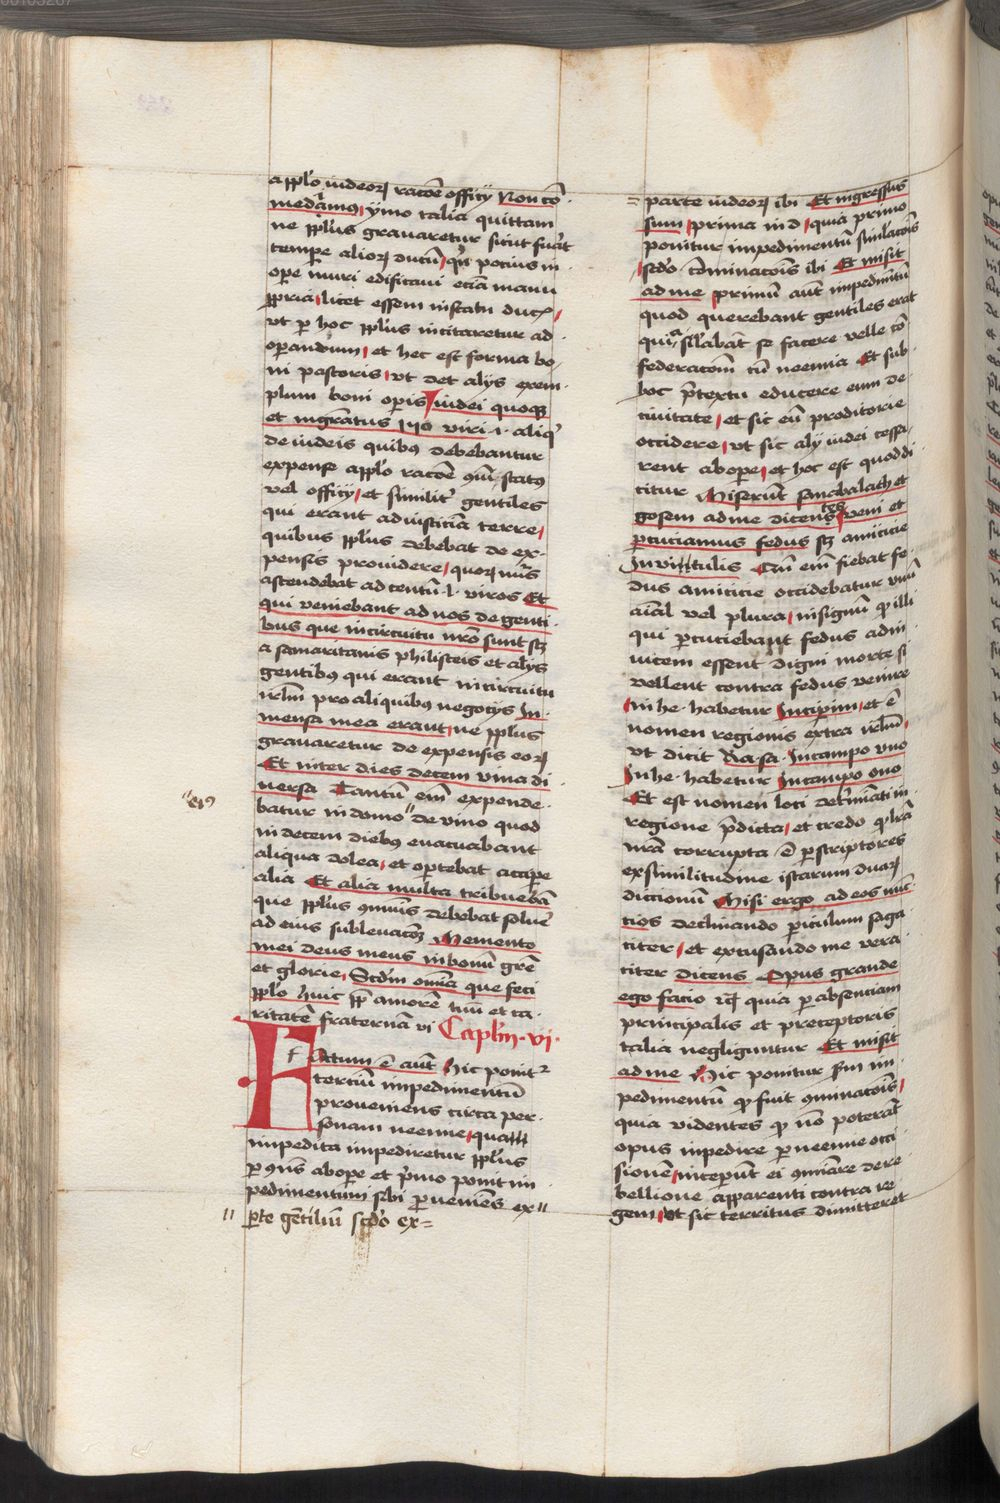 a pplo iudeoꝝ racōe officij Non cō
medimus ymo talia quittam
ne pplus grauaretur sicut fuerat
tempe alioꝝ ducū qn pocius in
ope muri edificaui eciā manu
ppria licet essem in statu ducꝭ
vt per hoc pplus incitaretur ad
operandum et hec est forma bo
ni pastoris vt det alijs exem
plum boni operis Iudei quoqꝫ
et mgratus 150 viri .i. aliqui
de iudeis quibus debebantur
expense a pplo racōe sui status
vel officij et similitr gentiles
qui erant ad iusticiā terre
quibus pplus debebat de ex
pensis prouidere quoꝝ nūs
ascendebat ad centū .l. viros Et
qui veniebant ad nos de genti
bus que in circuitu nrō sunt sꝫ
a samaritanis philisteis et alijs
gentibus qui erant in circuitu
irlm pro aliquibus negocijs In
mensa mea erant ne pplus
grauaretur de expensis eoꝝ
Et inter dies decem vina di
uersa Tantū em expende
batur in domo de vino quod
eius
in decem diebus euacuabant
aliqua dolea et oportebat accipe
alia Et alia multa tribuebā
que pplus cōmuis debebat soluere
ad eius subleuacōeꝫ Memento
mei deus meus in bonū grē
et glorie Scdm omia que feci
pplo huic ppt amorē tuū et ca
ritatē fraternam vi Caplm .vi.
Factum ē aut Hic ponitur
terciū impedimentū
proueniens circa per
sonam neemie qua
impedita impediretur pplus
per cōns ab ope et primo ponit im
pedimentum sibi perueniēs ex
parte gentiliū scdo ex
parte iudeoꝝ ibi Et ingressus
sum prima in d quia primo
ponitur impedimentū simlacōis
scdo cōminacōis ibi Et misit
ad me primū aut impedimētū
quod querebant gentiles erat
quia silabāt se facere velle cō
federacōm cū neemia Et sub
hoc pretextu educere eum de
ciuitate et sic eū proditorie
occidere vt sic alij iudei cessa
rent ab opere et hoc est quod di
citur Miserunt sanabalach et
gosem ad me dicentes veni et
percuciamus fedus sꝫ amicicie
In vitulis Cū em fiebat fe
dus amicicie occidebatur vnū
aial vel plura in signū qd illi
qui percuciebant fedus ad in
uicem essent digni morte si
vellent contra fedus venire
in he. habetur In ciperim et ē
nomen regionis extra irlm
vt dicit Ra. sa. In campo vno
In he. habetur In campo ono
Et est nomen loci determinati in
regione predicta et credo qd lrā
nrā corrupta ē per scriptores
ex similitudine istarum duaꝝ
diccionū Misi ergo ad eos nūc
cios declinando periculum saga
citer et excusando me vera
citer dicens Opus grande
ego facio rꝫ quia per absenciam
principalis et preceptoris
talia negliguntur Et misit
ad me Hic ponitur scdm im
pedimentū qd fuit cōminacōis
quia videntes qd nō poterāt
opus inpedire per neemie occi
sionem inceperūt ei cōmiare de re
bellione apparenti contra re
gem vt sic territus dimitteret